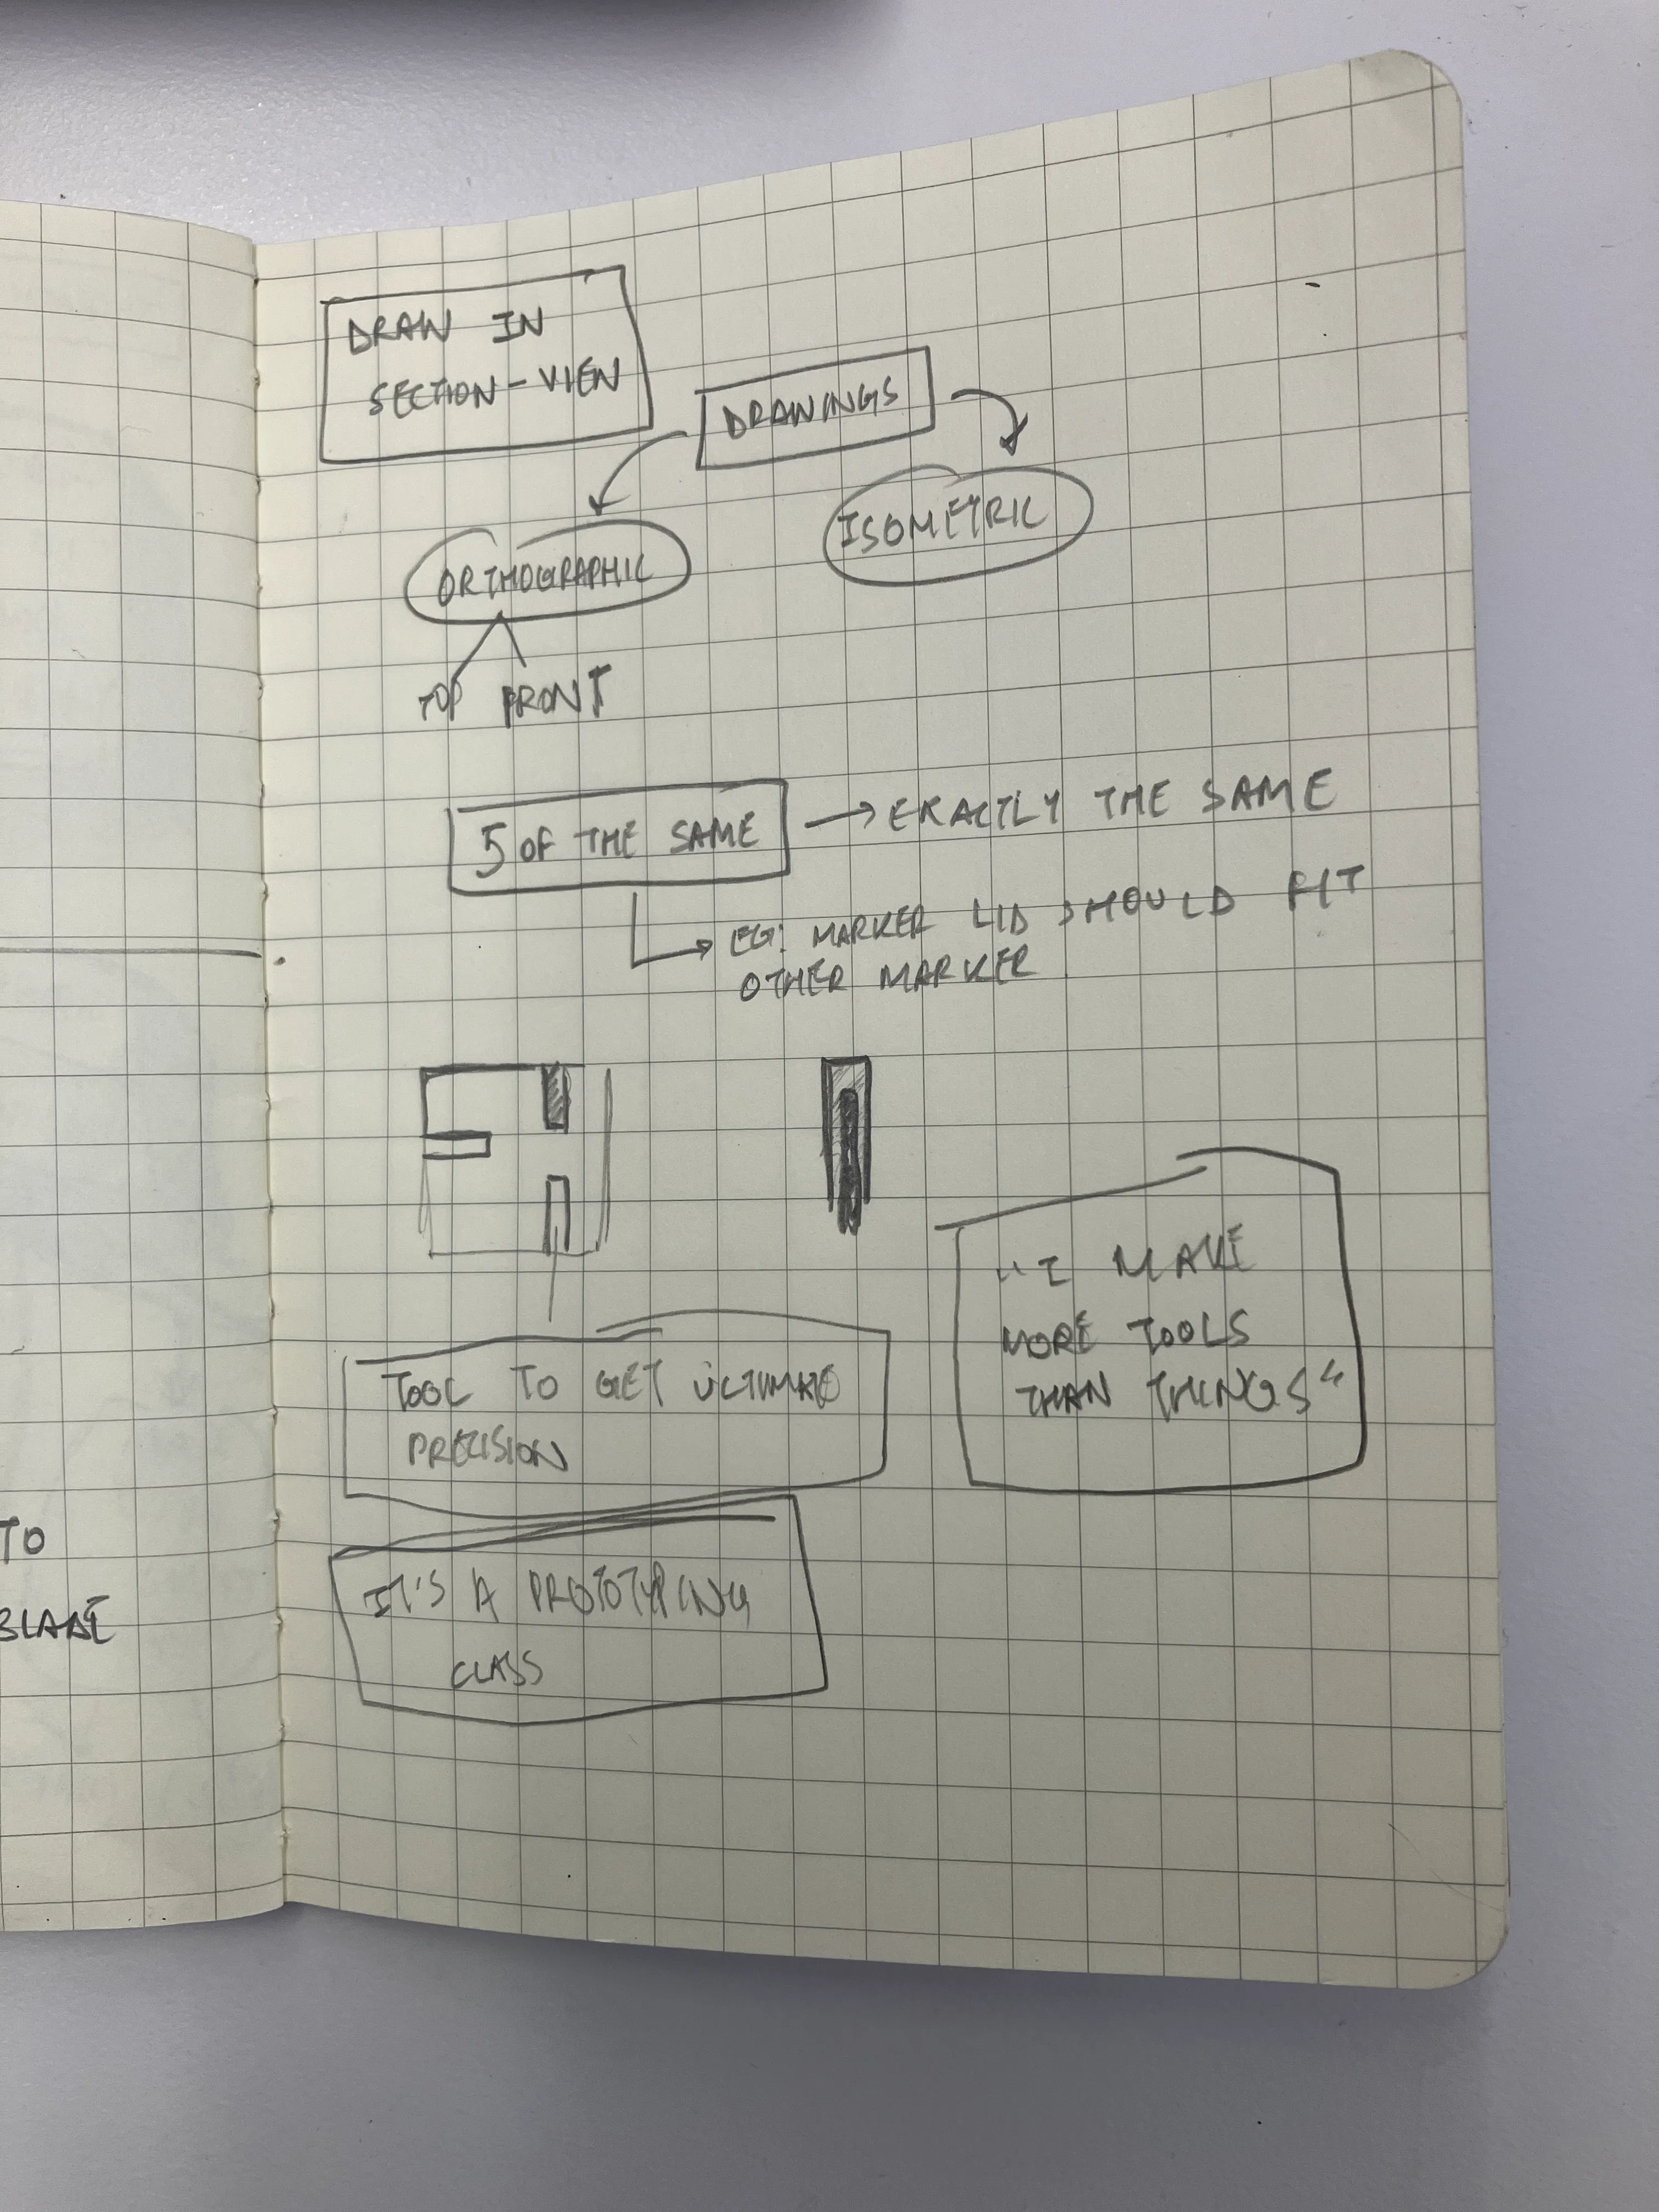 DRAW IN
SECTION-VIEW
DRAWINGS
ORTHOGRAPHIC
ISOMETRIC
TOP FRONT
5 OF THE SAME → EXACTLY THE SAME
→ EG: MARKER LID SHOULD FIT
OTHER MARKER
"I MAKE
MORE TOOLS
THAN THINGS"
TOOL TO GET ULTIMATE
PRECISION
IT'S A PROTOTYPING
CLASS
TO
BLADE